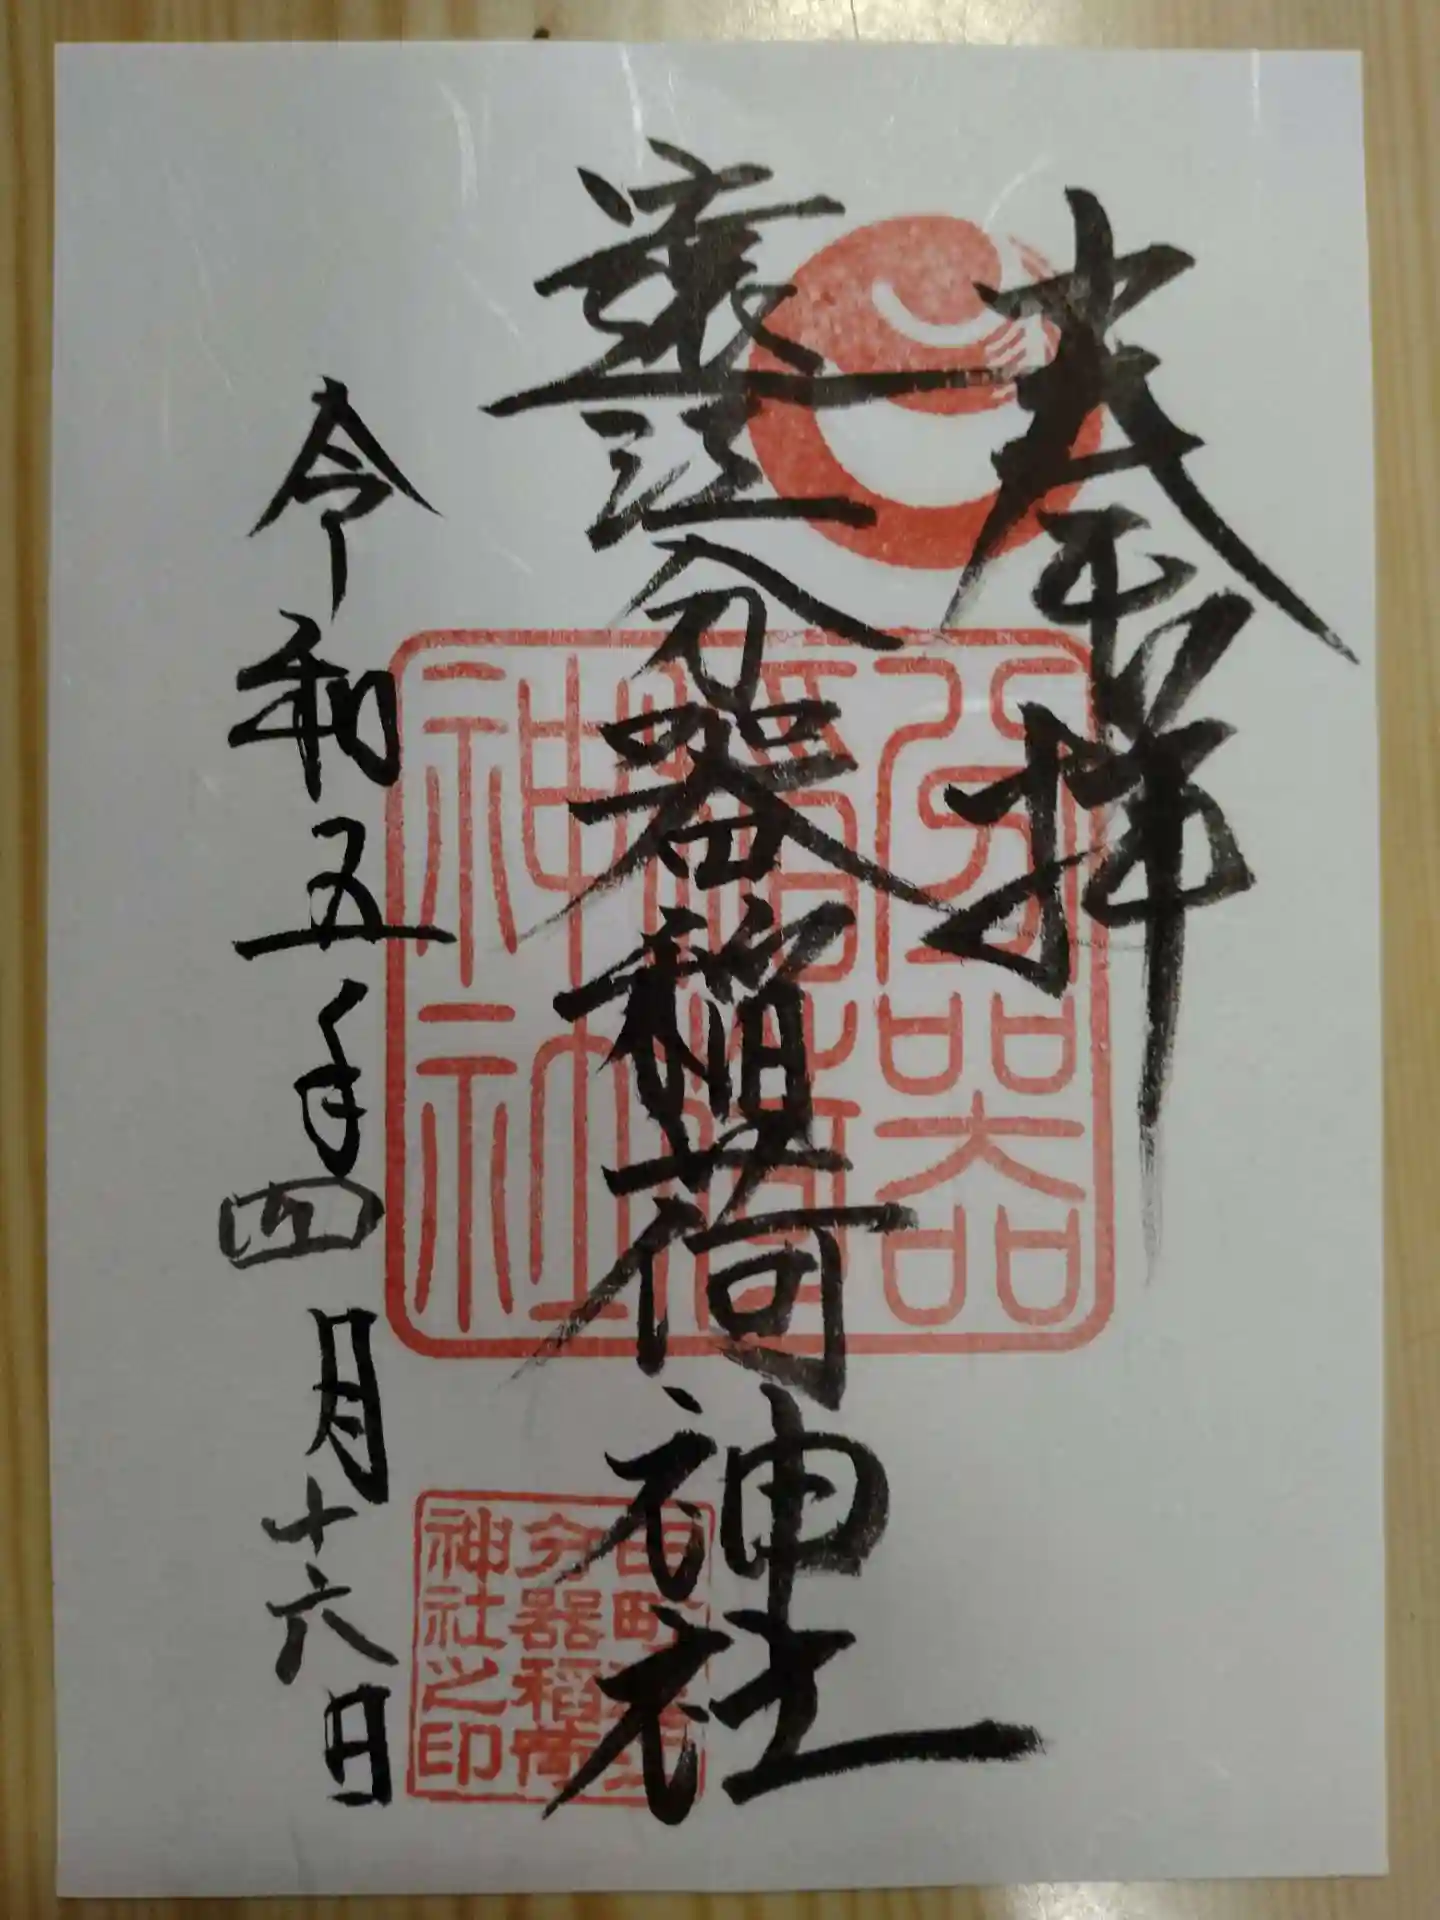 奉拝
江分器稲荷神社
令和五年四月十六日
分器
稲荷
神社
田町
分器稲荷
神社之印